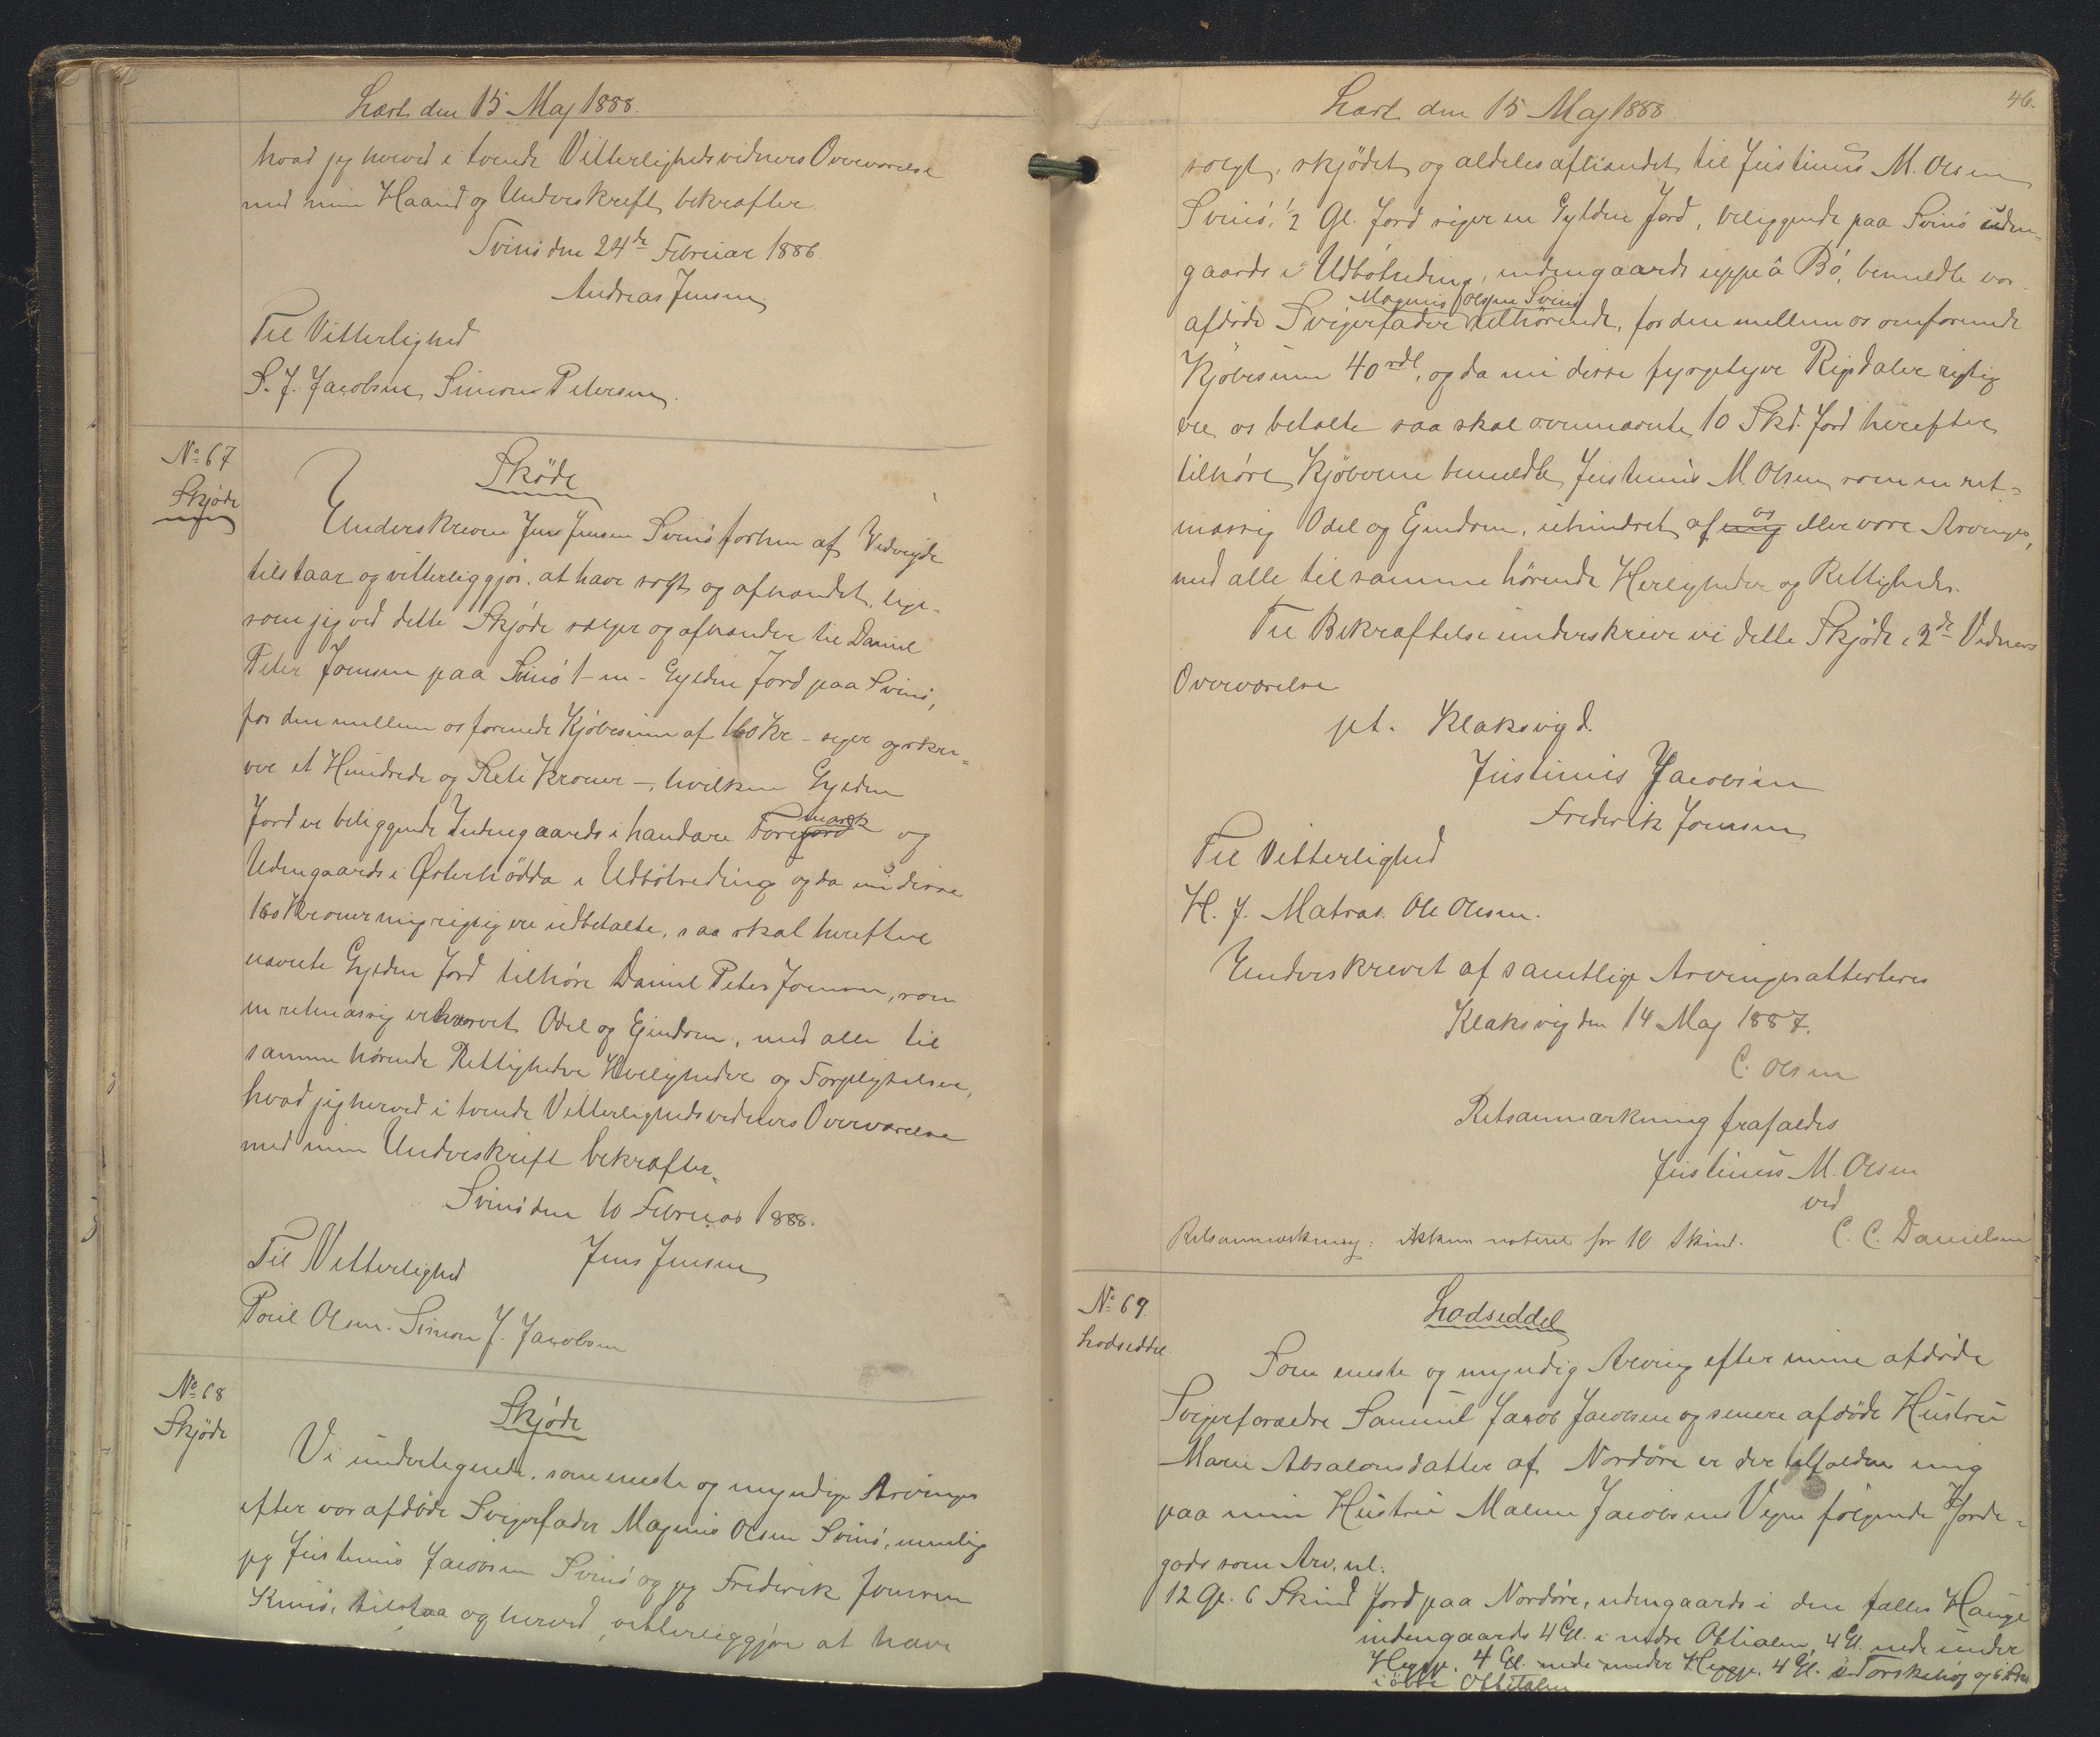 Læst den 15 Maj 1888.
hvad jeg herved i tvende Vitterlighedsvidners Overværelse
med min Haand og Underskrift bekræfter
Svinö den 24de Februar 1886.
Andreas Jensen
Til Vitterlighed
S. J. Jacobsen, Simon Petersen.
No 67
Skjöde
Sköde
Underskreven Jens Jensen Svinö forhen af Vedvigde
tilstaar og vitterliggjör, at have solgt og afhændet, lige-
som jeg ved dette Skjöde sælger og afhænder til Daniel
Peter Joensen paa Svinö 1 - en - Gylden Jord paa Svinö,
for den mellem os forenede Kjöbesum af 160 Kr - siger og skri-
ver et Hundrede og Seksti Kroner -, hvilken Gylden
Jord er beliggende Indengaards i handare Forejord mark og
Udengaards i Österhödda i Udbölreding og da nu disse
160 Kroner mig rigtig ere udbetalte, saa skal herefter
nævnte Gylden Jord tilhöre Daniel Peter Joensen, som
en retmæssig erhvervet Odel og Ejendom, med alle til
samme hörende Rettigheder Herligheder og Forpligtelser,
hvad jeg herved i tvende Vitterlighedsvidners Overværelse
med min Underskrift bekræfter.
Svinö den 10 Februar 1888.
Til Vitterlighed Jens Jensen
Poul Olsen. Simon J. Jacobsen
No 68
Skjöde
Skjöde
Vi undertegnede, som eneste og myndige Arvinger
efter vor afdöde Svigerfader Magnus Olsen Svinö, nemlig
jeg Justinus Jacobsen Svinö og jeg Frederik Joensen
Kunö, tilstaa og herved vitterliggjöre at have
Læst den 15 Maj 1888
46.
solgt, skjödet og aldeles afhændet til Justinus M. Olsen
Svinö, 1/2 Gl. Jord siger en Gylden Jord, beliggende paa Svinö uden-
gaards i Udbölreding, indengaards uppe â Bö, bemeldte vor
afdöde Svigerfader Magnus Olsen Svinö tilhörende, for den mellem os omforenede
Kjöbesum 40 rdl, og da nu disse fyrgetyve Rigsdaler rigtig
ere os betalte saa skal ovennævnte 10 Skd. Jord herefter
tilhöre Kjöberen bemeldte Justinus M Olsen som en ret-
mæssig Odel og Ejendom, uhindret af mig os eller vore Arvinger,
med alle til samme hörende Herligheder og Rettigheder.
Til Bekræftelse underskrive vi dette Skjöde i 2de Vidners
Overværelse
pt. Klaksvig d.
Justinus Jacobsen
Frederik Joensen
Til Vitterlighed
H. J. Matras. Ole Olsen.
Underskrevet af samtlige Arvinger attesteres
Klaksvig den 14 Maj 1887.
C. Olsen
Retsanmærkning frafaldes
Justinus M. Olsen
ved
C. C. Danielsen
Retsanmærkning: Atkun noteret for 10 Skind.
No 69.
Lodseddel
Lodseddel
Som eneste og myndig Arving efter mine afdöde
Svigerforældre Samuel Jacob Jacobsen og senere afdöde Hustru
Marie Absalonsdatter af Nordöre er der tilfalden mig
paa min Hustru Malene Jacobsens Vegne fölgende Jorde-
gods som Arv, nl:
12 Gl. 6 Skind Jord paa Nordöre, udengaards i den fælles Hauge
indengaards 4 Gl. i nedre Oftialen, 4 Gl. nede under
Heygge. 4 Gl. nede under Heygge. 4 Gl. i Torskehöj og 6 Skd
i övre Oftitalen